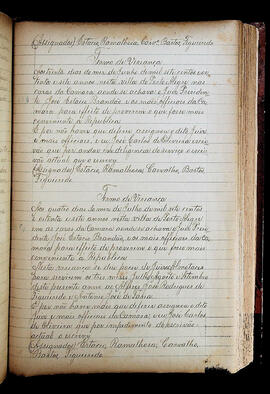 (Assignados) Estacio, Ramalhosa, Carvº, Bastos, Figueiredo
Termo de Vereança
Aos trinta dias do mez de Junho de mil sete centos e oi-
tenta e sete annos nesta villa de Porto Alegre nas
casas da Camara aonde se achava o Juiz Presiden-
te José Estacio Brandão e os mais officiaes da Ca-
mara para effeito de proverem o que fosse mais
conveniente á Republica
E por não haver que deferir assignou o dito Juiz
e mais officiaes, e eu José Carlos de Oliveira escri-
vão que por andar em deligencia de serviço o escri-
vão actual que o escrevy.
(Assignados) Estacio, Ramalhosa, Carvalho, Bastos,
Figueiredo.
Termo de Vereança
Aos quatro dias do mez de Julho de mil sete centos
e oitenta e sete annos nesta villa de Porto Alegre
em as casas da Camara aonde se achava o Juiz Presi-
dente José Estacio Brandão, e os mais officiaes da Ca-
mara para effeito de proverem o que fosse mais
conveniente á Republica
Nesta vereança se deu posse de Juizes Almotaces
para servirem os tres mezes Julho, Agosto e Setembro
deste presente anno ao Alferes José Rodrigues de
Figueiredo e Antonio José de
E por não haver mais que deferir assignou o dito
Juiz e mais officiaes da Camara, e eu José Carlos
de Oliveira que por impedimento do escrivão
actual o escrevy.
(Assignados) Estacio, Ramalhosa, Carvalho,
Bastos, Figueiredo